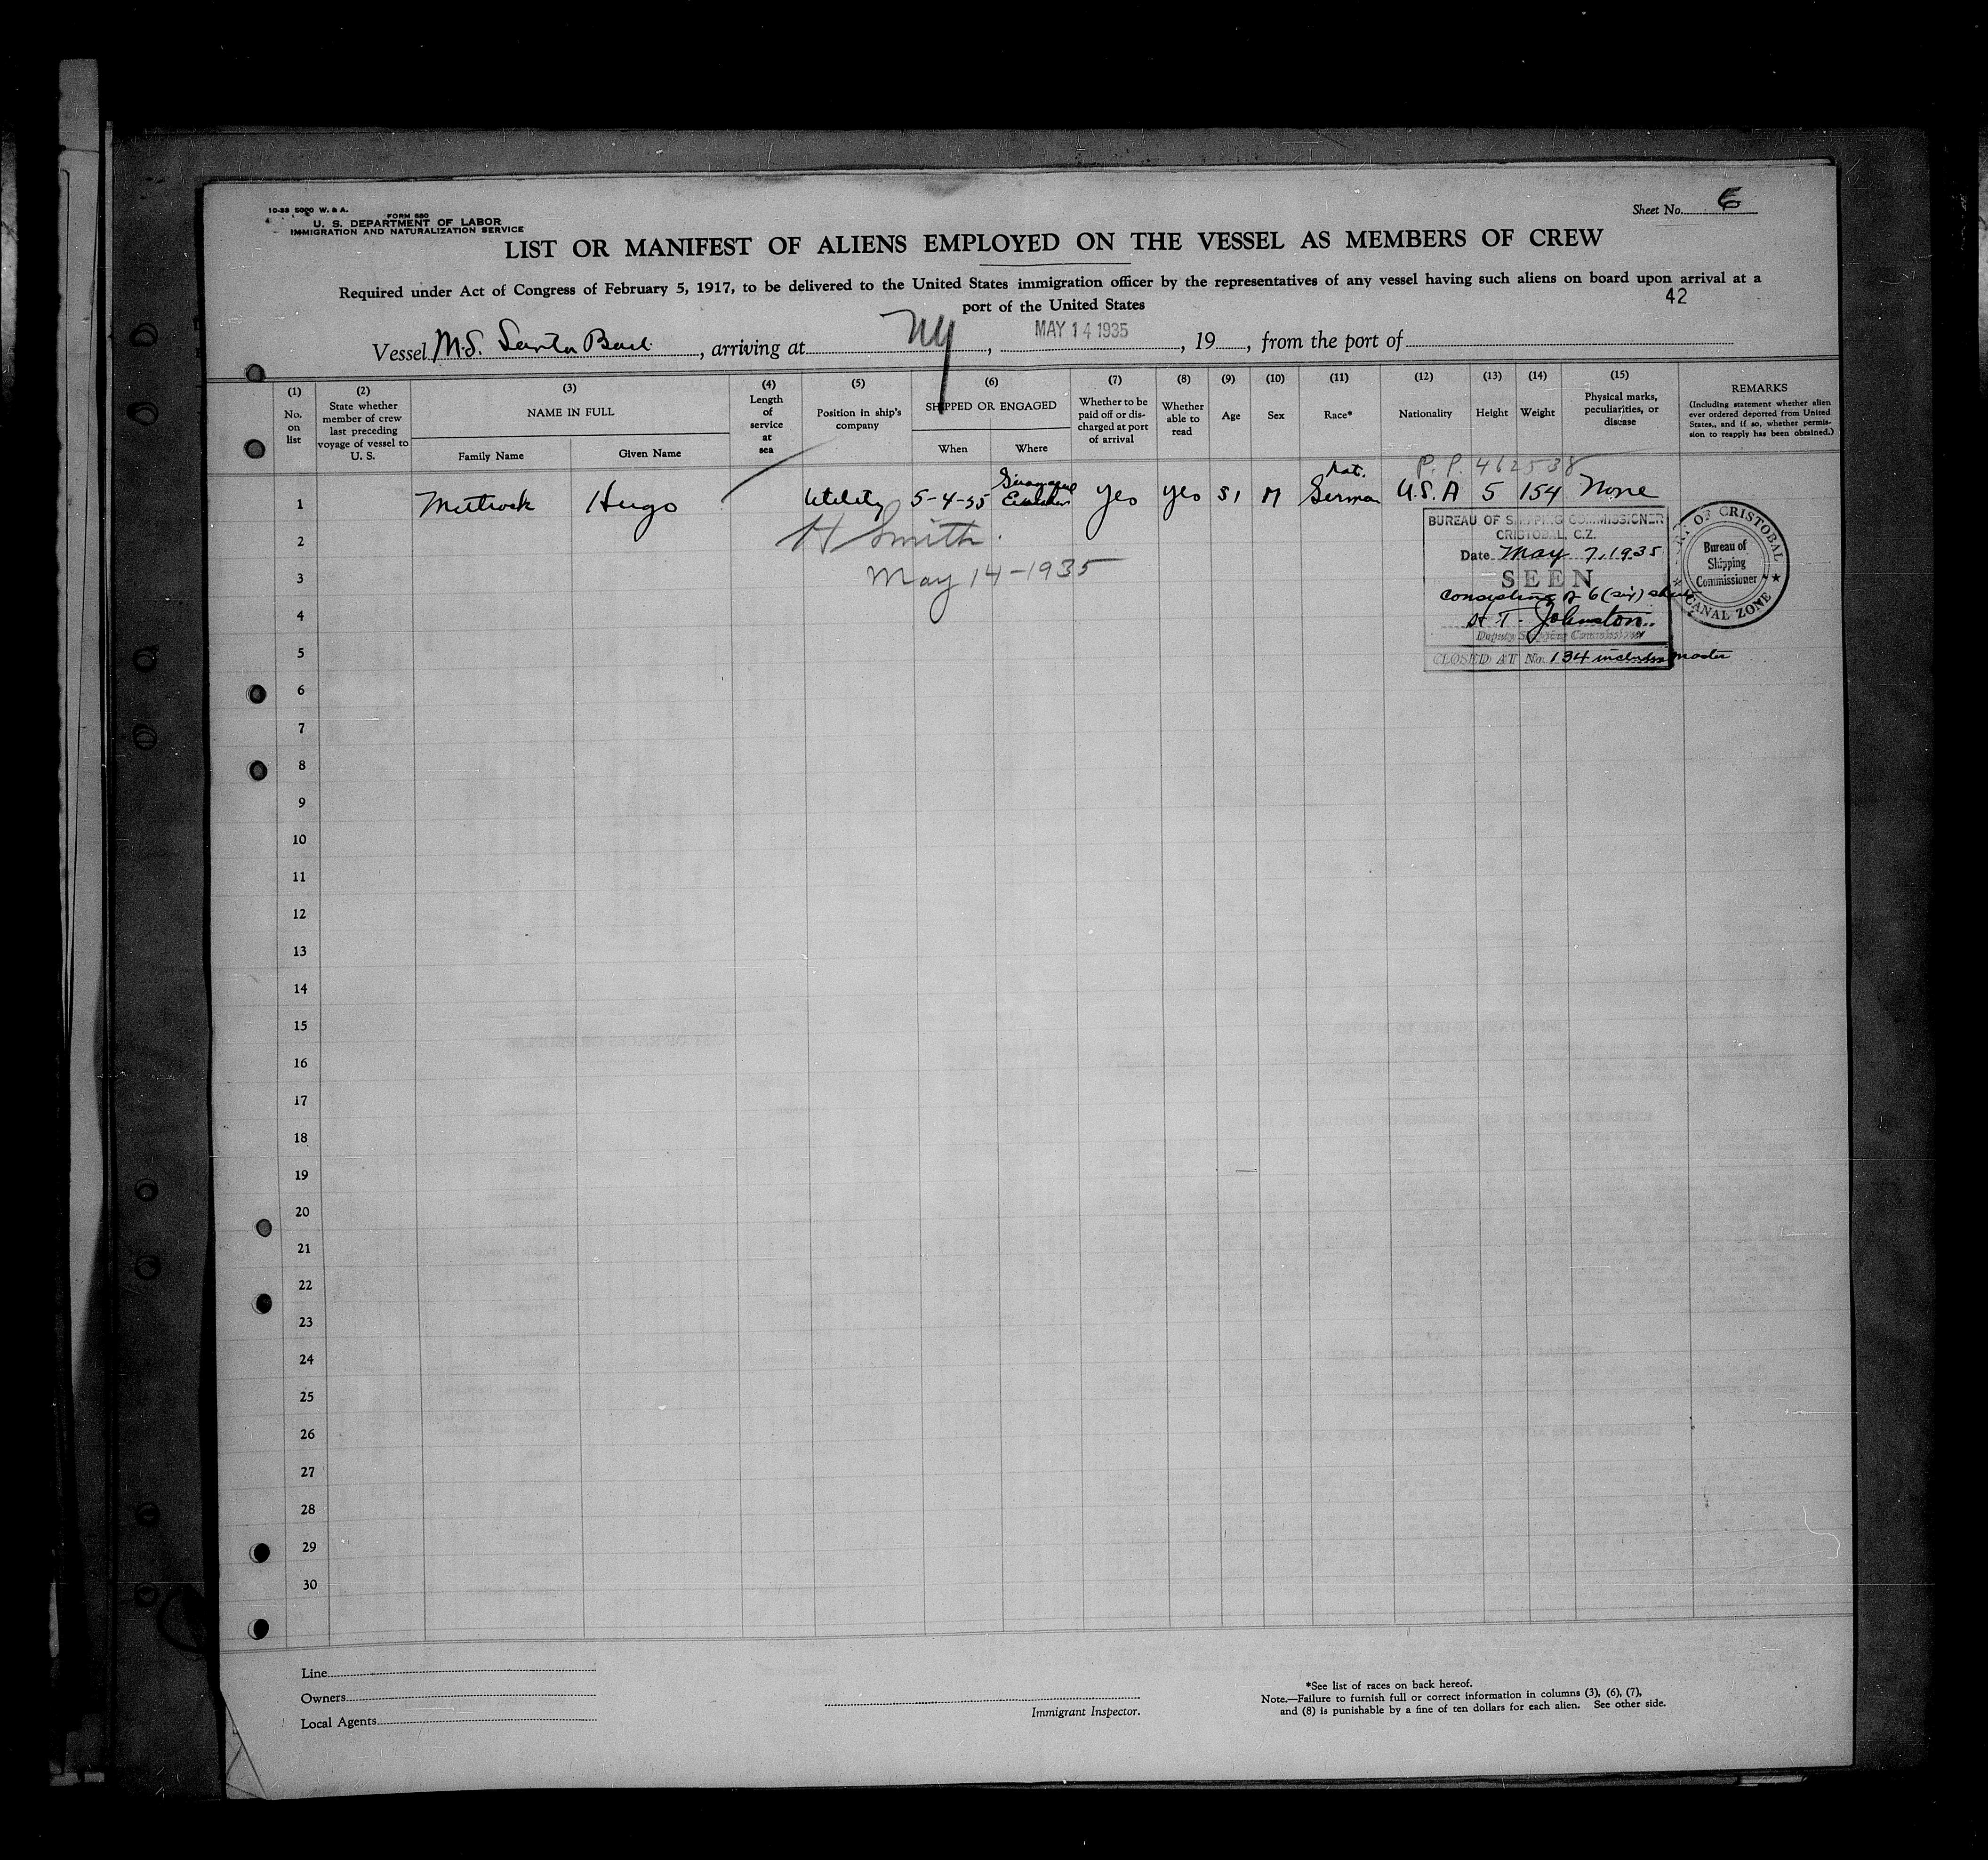 10-33 5000 W. & A.
FORM 680
U. S. DEPARTMENT OF LABOR
IMMIGRATION AND NATURALIZATION SERVICE
Sheet No. 6
LIST OR MANIFEST OF ALIENS EMPLOYED ON THE VESSEL AS MEMBERS OF CREW
Required under Act of Congress of February 5, 1917, to be delivered to the United States immigration officer by the representatives of any vessel having such aliens on board upon arrival at a
port of the United States
42
Vessel M.S. Santa , arriving at NY , MAY 14 1935 , 19 , from the port of
(1) No. on list
(2) State whether member of crew last preceding voyage of vessel to U. S.
(3) NAME IN FULL
Family Name
Given Name
(4) Length of service at sea
(5) Position in ship's company
(6) SHIPPED OR ENGAGED
When
Where
(7) Whether to be paid off or discharged at port of arrival
(8) Whether able to read
(9) Age
(10) Sex
(11) Race*
(12) Nationality
(13) Height
(14) Weight
(15) Physical marks, peculiarities, or disease
REMARKS
(Including statement whether alien ever ordered deported from United States,, and if so, whether permission to reapply has been obtained.)
Nat. P.P. 462538
1 Hugo Utility 5-4-35 yes yes 51 M German U.S.A 5 154 None
2 H Smith.
3 May 14-1935
4
5
6
7
8
9
10
11
12
13
14
15
16
17
18
19
20
21
22
23
24
25
26
27
28
29
30
BUREAU OF SHIPPING COMMISSIONER
CRISTOBAL, C.Z.
Date May 7, 1935
SEEN
Consisting of 6 (six) sheets
H T. Johnston
Deputy Shipping Commissioner
CLOSED AT No. 134 including master
PORT OF CRISTOBAL
Bureau of
Shipping
Commissioner
CANAL ZONE
Line
Owners
Local Agents
Immigrant Inspector.
*See list of races on back hereof.
Note.—Failure to furnish full or correct information in columns (3), (6), (7),
and (8) is punishable by a fine of ten dollars for each alien. See other side.